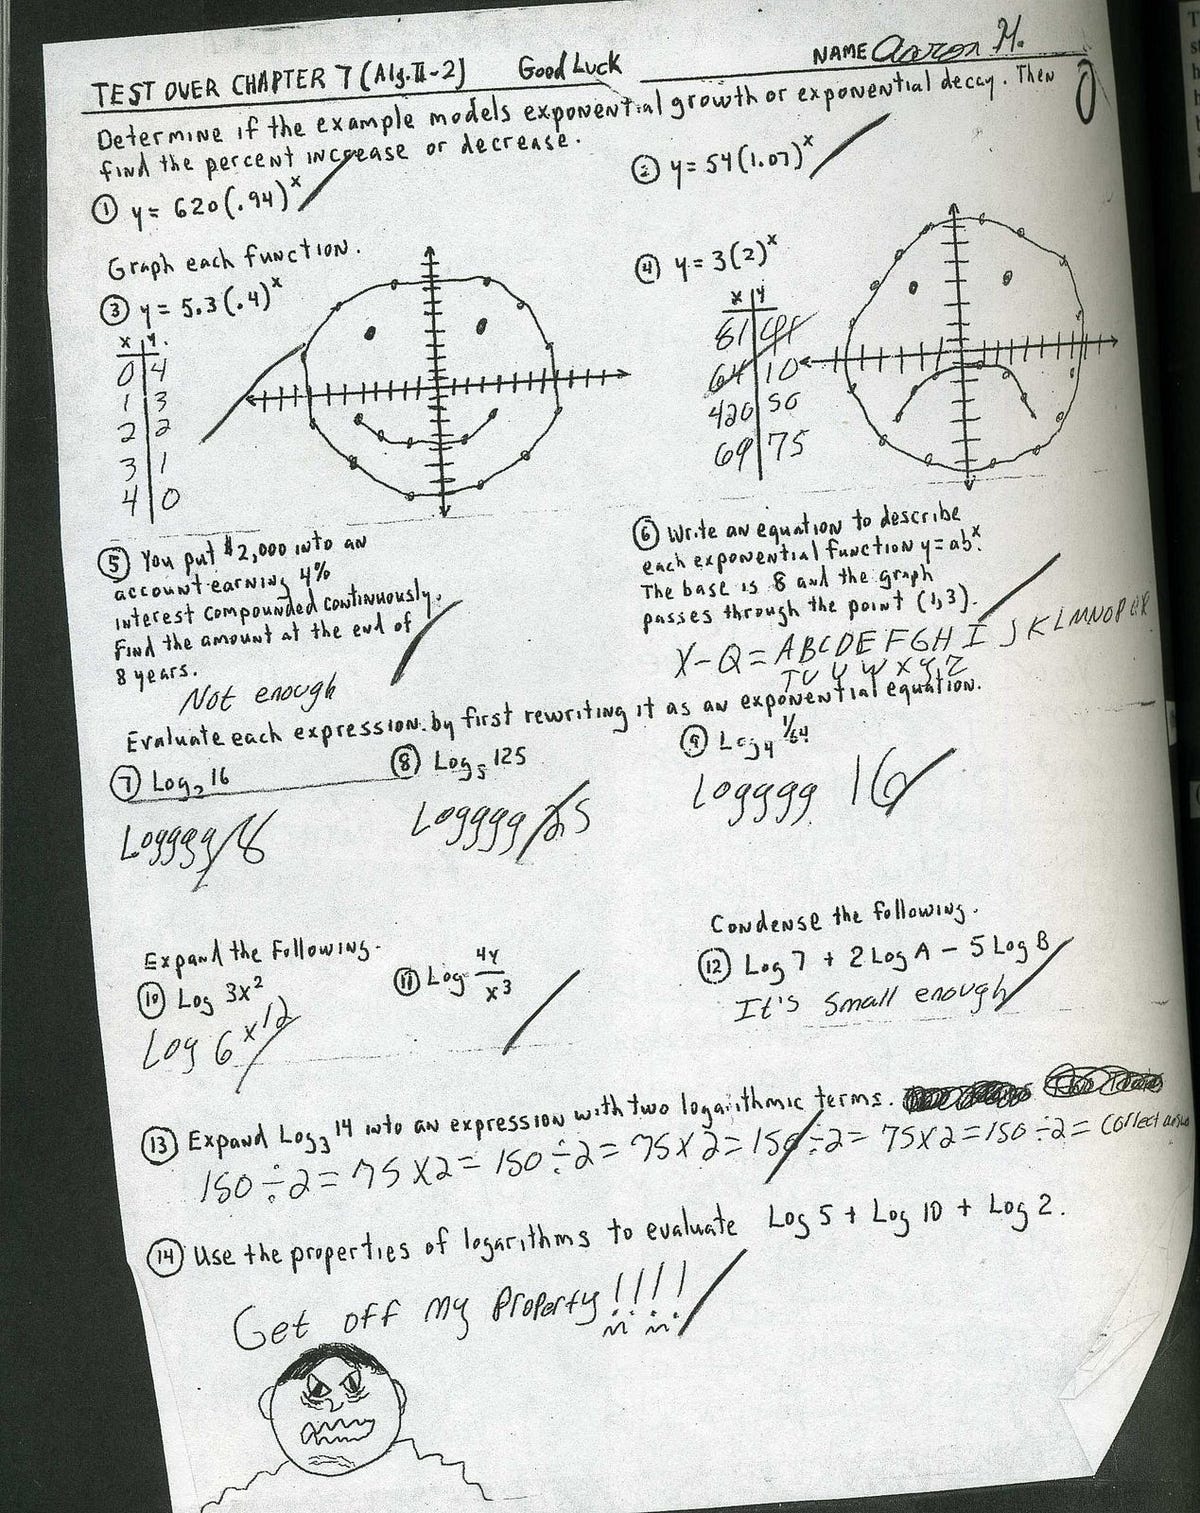 TEST OVER CHAPTER 7 (Alg.II-2) Good Luck NAME Aaron H.
0
Determine if the example models exponential growth or exponential decay. Then
find the percent increase or decrease.
① y = 620(.94)^x
② y = 54(1.07)^x
Graph each function.
③ y = 5.3(.4)^x
x | y
0 | 4
1 | 3
2 | 2
3 | 1
4 | 0
④ y = 3(2)^x
x | y
81
64 | 10
420 | 50
69 | 75
⑤ You put $2,000 into an
account earning 4%
interest compounded continuously.
Find the amount at the end of
8 years.
Not enough
⑥ Write an equation to describe
each exponential function y = ab^x.
The base is 8 and the graph
passes through the point (1,3).
X-Q = ABCDEFGHI JKLMNOP
TU V W X Y Z
Evaluate each expression by first rewriting it as an exponential equation.
⑦ Log₂ 16
Logggg 8
⑧ Log₅ 125
Logggg 25
⑨ Log₄ 1/64
Logggg 16
Expand the Following.
⑩ Log 3x²
Log 6^x12
⑪ Log 4y/x³
Condense the following.
⑫ Log 7 + 2 Log A - 5 Log B
It's small enough
⑬ Expand Log₃ 14 into an expression with two logarithmic terms.
150÷2=75x2=150÷2=75x2=150÷2=75x2=150÷2=
⑭ Use the properties of logarithms to evaluate Log 5 + Log 10 + Log 2.
Get off my Property!!!!